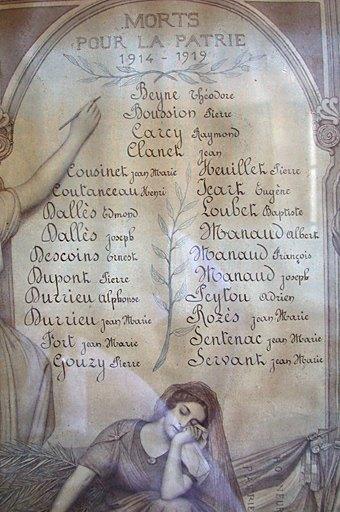 MORTS
POUR LA PATRIE
1914 - 1919
Beyne Théodore
Boussion Pierre
Carcy Raymond
Clanet Jean
Cousinet Jean Marie
Coutanceau Henri
Dallès Edmond
Dallès Joseph
Descoins Ernest
Dupont Pierre
Durrieu Alphonse
Durrieu Jean Marie
Fort Jean Marie
Gouzy Pierre
Heuillet Pierre
Icart Eugène
Loubet Baptiste
Manaud Albert
Manaud François
Manaud Joseph
Peytou Adrien
Rozès Jean Marie
Sentenac Jean Marie
Servant Jean Marie
PATRIE